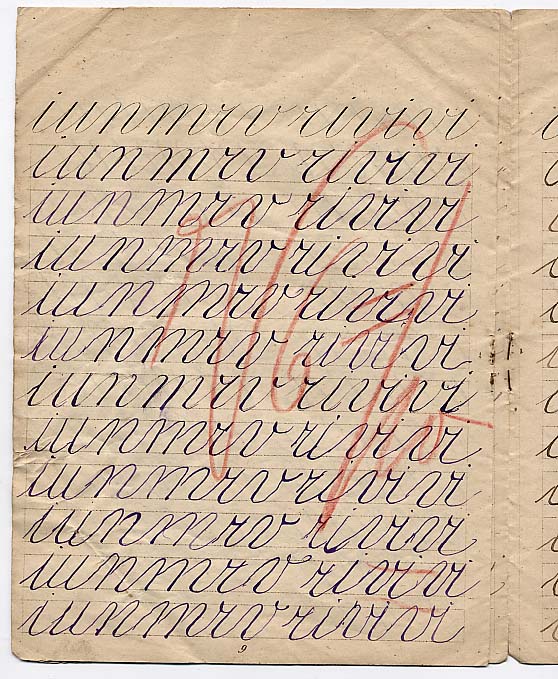 i u n m r v ri vi vi
i u n m r v ri vi vi
i u n m r v ri vi vi
i u n m r v ri vi vi
i u n m r v ri vi vi
i u n m r v ri vi vi
i u n m r v ri vi vi
i u n m r v ri vi vi
i u n m r v ri vi vi
i u n m r v ri vi vi
i u n m r v ri vi vi
i u n m r v ri vi vi
9